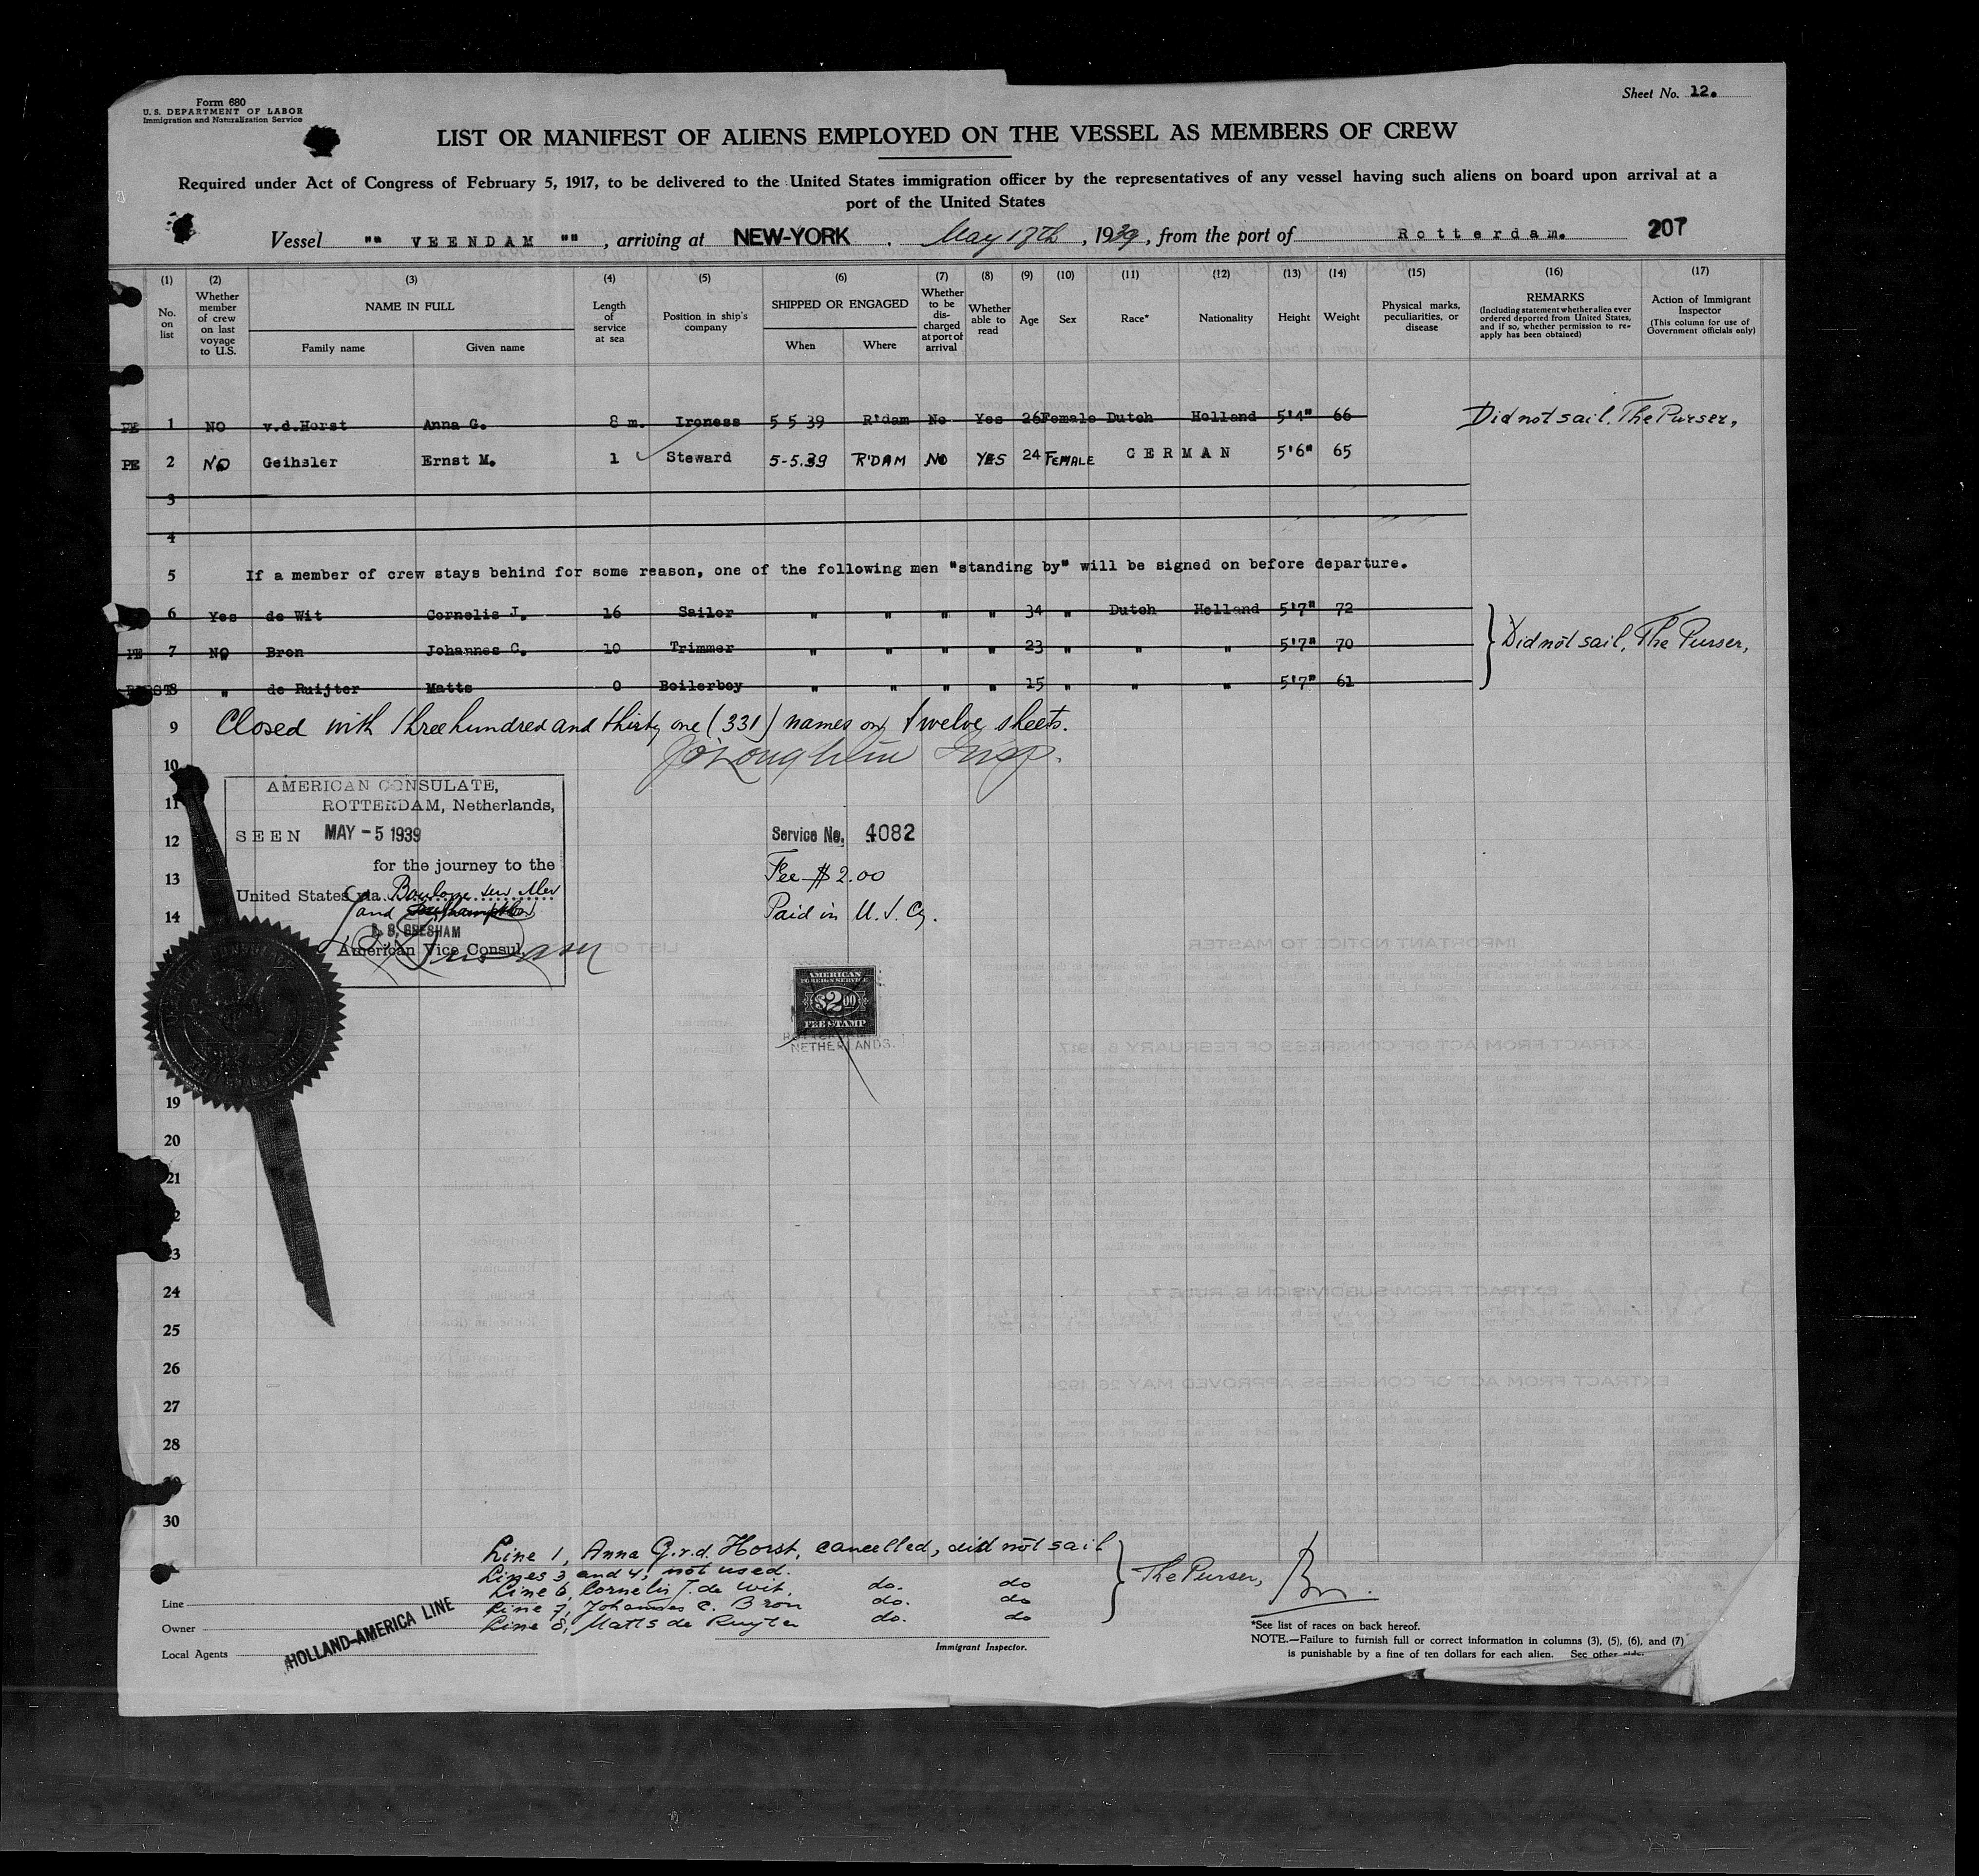 Form 680
U. S. DEPARTMENT OF LABOR
Immigration and Naturalization Service
Sheet No. 12.
LIST OR MANIFEST OF ALIENS EMPLOYED ON THE VESSEL AS MEMBERS OF CREW
Required under Act of Congress of February 5, 1917, to be delivered to the United States immigration officer by the representatives of any vessel having such aliens on board upon arrival at a
port of the United States
Vessel "" VEENDAM "" , arriving at NEW-YORK . May 17th , 1939 , from the port of Rotterdam. 207
(1) (2) (3) (4) (5) (6) (7) (8) (9) (10) (11) (12) (13) (14) (15) (16) (17)
No. on list
Whether member of crew on last voyage to U.S.
NAME IN FULL
Family name Given name
Length of service at sea
Position in ship's company
SHIPPED OR ENGAGED
When Where
Whether to be discharged at port of arrival
Whether able to read
Age Sex Race* Nationality Height Weight
Physical marks, peculiarities, or disease
REMARKS
(Including statement whether alien ever ordered deported from United States, and if so, whether permission to reapply has been obtained)
Action of Immigrant Inspector
(This column for use of Government officials only)
PE 1 NO v.d.Horst Anna G. 8 m. Ironess 5 5 39 R'dam No Yes 26 Female Dutch Holland 5'4" 66 Did not sail. The Purser,
PE 2 NO Geihsler Ernst M. 1 Steward 5-5.39 R'DAM NO YES 24 FEMALE GERMAN 5'6" 65
3
4
5 If a member of crew stays behind for some reason, one of the following men "standing by" will be signed on before departure.
6 Yes de Wit Cornelis J. 16 Sailor " " " " 34 " Dutch Holland 5'7" 72
PE 7 NO Bron Johannes C. 10 Trimmer " " " " 23 " " " 5'7" 70 Did not sail, The Purser,
8 " de Ruijter Matts 0 Boilerboy " " " " 15 " " " 5'7" 61
9 Closed with three hundred and thirty one (331) names on twelve sheets.
10 J O'Loughlin Insp.
11
12
13
14
AMERICAN CONSULATE,
ROTTERDAM, Netherlands,
SEEN MAY -5 1939
for the journey to the
United States via Boulogne sur Mer
and Southampton
GRESHAM
American Vice Consul,
Service No. 4082
Fee $2.00
Paid in U.S. Cy.
AMERICAN
FOREIGN SERVICE
$2 00
FEE STAMP
NETHERLANDS.
19
20
21
24
25
26
27
28
30
Line 1, Anna G. v.d. Horst, cancelled, did not sail
Lines 3 and 4, not used.
Line 6, Cornelis J. de Wit, do. do
Line 7, Johannes C. Bron do. do
Line 8, Matts de Ruyter do. do
The Purser,
Line
Owner
Local Agents
HOLLAND-AMERICA LINE
Immigrant Inspector.
*See list of races on back hereof.
NOTE.—Failure to furnish full or correct information in columns (3), (5), (6), and (7)
is punishable by a fine of ten dollars for each alien. See other side.